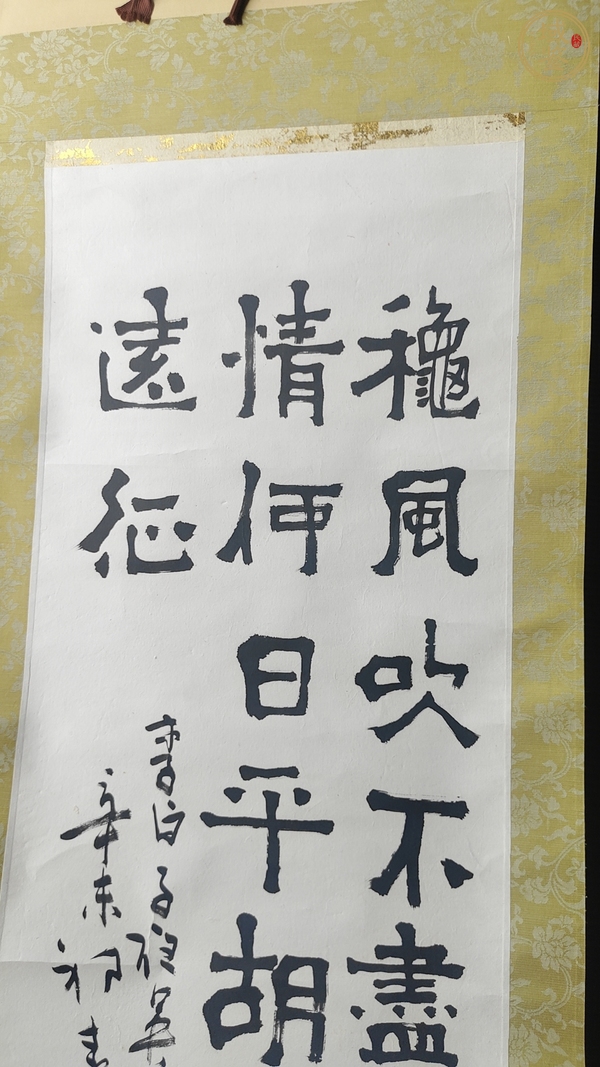 龝風吹不盡
情何日平胡
遠征
李白子夜吴
辛未初春